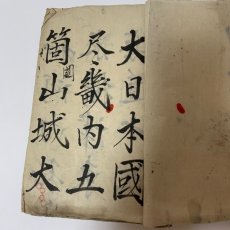 大日本國
尽畿内五
箇山城大